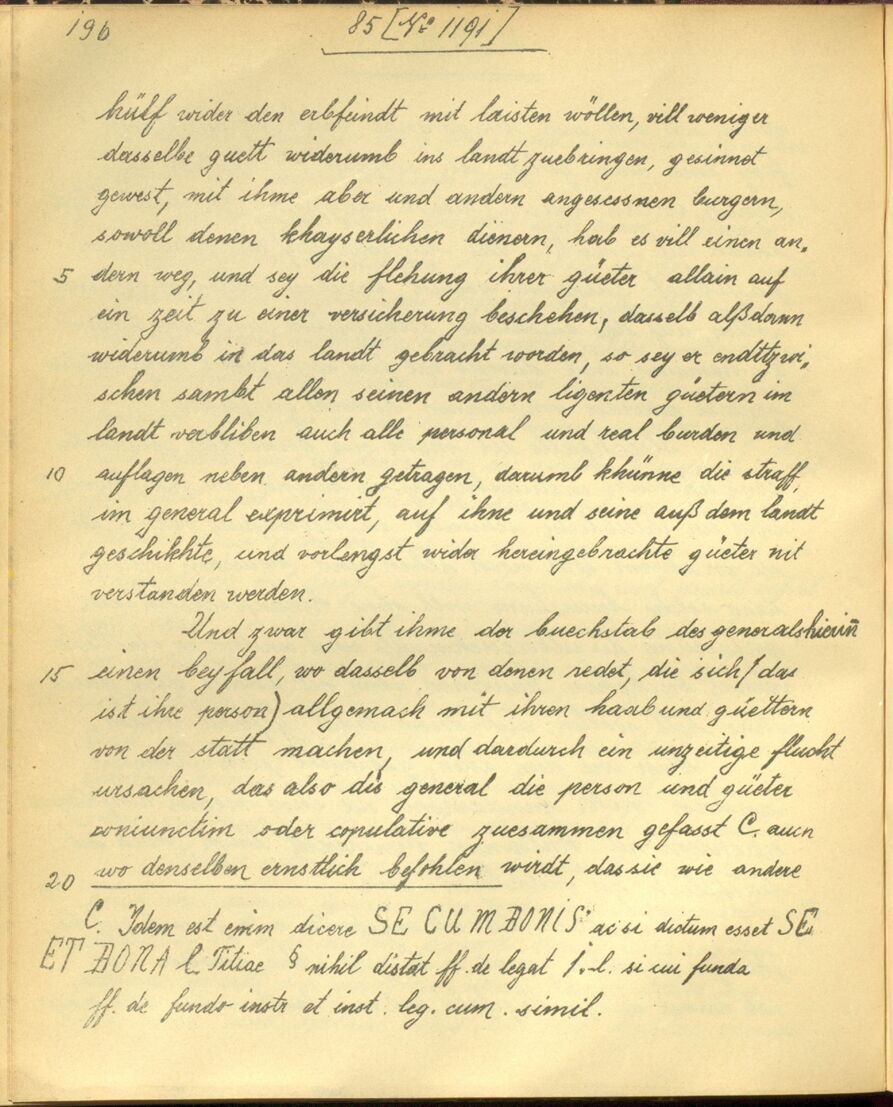 196
85 [No 1191]
hülf wider den erbfeindt mit laisten wöllen, vill weniger
dasselbe guett widerumb ins landt zuebringen, gesinnet
gewest, mit ihme aber und andern angesessnen burgern,
sowoll denen khayserlichen dienern, hab es vill einen an„
5 dern weg, und sey die flehung ihrer güeter allain auf
ein zeit zu einer versicherung beschehen, dasselb alßdann
widerumb in das landt gebracht worden, so sey er endttzwi„
schen sambt allen seinen andern ligenten güetern im
landt verbliben auch alle personal und real burden und
10 auflagen neben andern getragen, darumb khünne die straff,
im general exprimirt, auf ihne und seine auß dem landt
geschikhte, und vorlengst wider hereingebrachte güeter nit
verstanden werden.
Und zwar gibt ihme der buechstab des generals hierin̅
15 einen beyfall, wo dasselb von denen redet, die sich / das
ist ihre person) allgemach mit ihren haab und güettern
von der statt machen, und dardurch ein unzeitige flucht
ursachen, das also dis general die person und güeter
coniunctim oder copulative zuesammen gefasst C. auch
20 wo denselben ernstlich befohlen wirdt, das sie wie andere
C. Idem est enim dicere SE CUM BONIS ac si dictum esset SE
ET BONA l. Titiae § nihil distat ff. de legat 1. l. si cui funda
ff. de fundo instr et inst. leg. cum. simil.